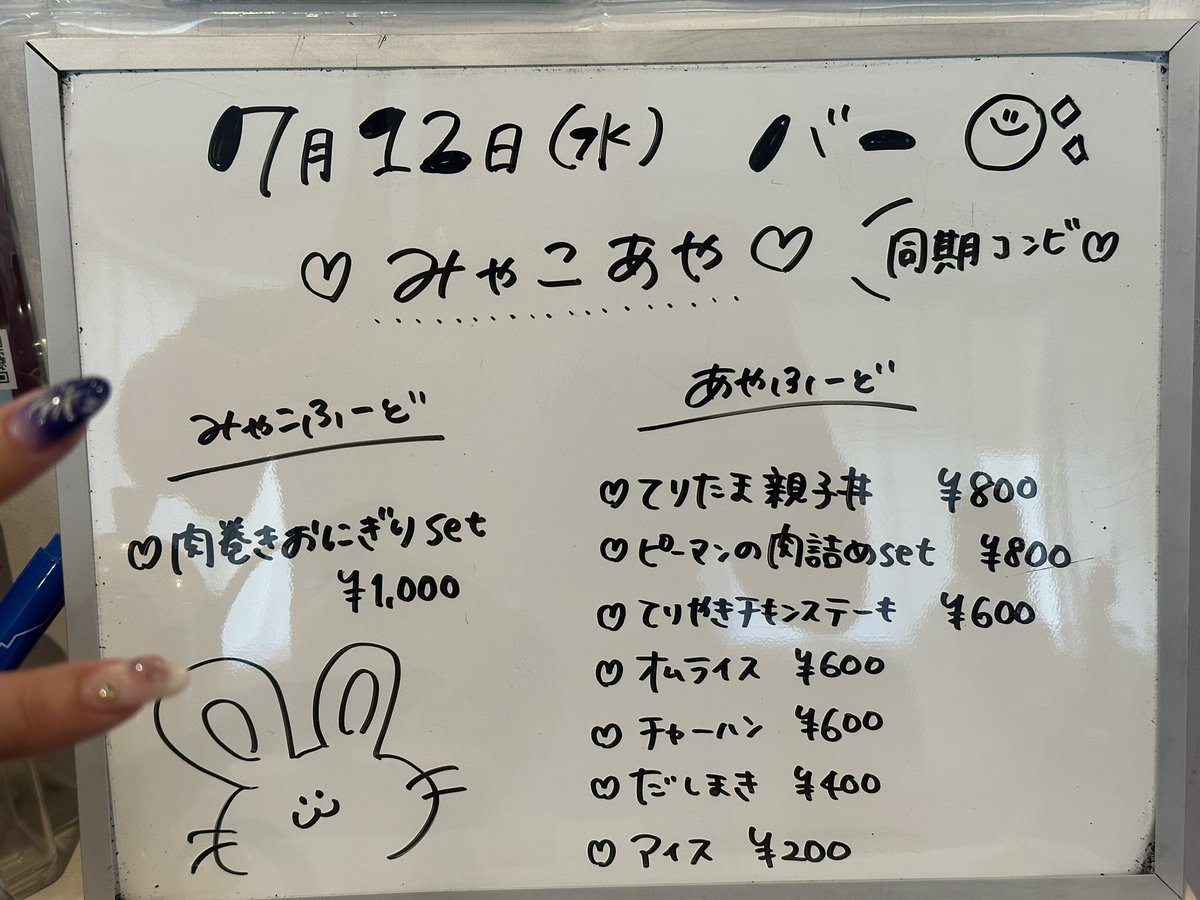 7月12日(水) バー
♡みやこあや♡ (同期コンビ♡
みやこふーど
♡肉巻きおにぎりset
¥1,000
あやふーど
♡てりたま親子丼 ¥800
♡ピーマンの肉詰めset ¥800
♡てりやきチキンステーキ ¥600
♡オムライス ¥600
♡チャーハン ¥600
♡だしまき ¥400
♡アイス ¥200